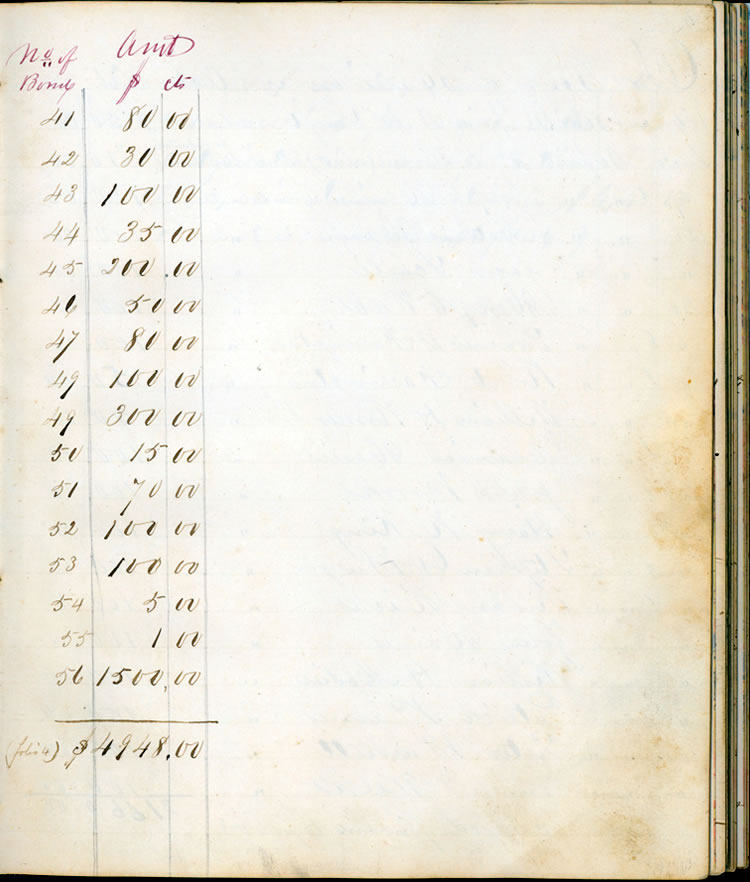 No. of Amt
Bond $ cts
41 80 00
42 30 00
43 100 00
44 35 00
45 200.00
46 50 00
47 80 00
49 100 00
49 300 00
50 15 00
51 70 00
52 100 00
53 100 00
54 5 00
55 1 00
56 1500.00
$4948.00